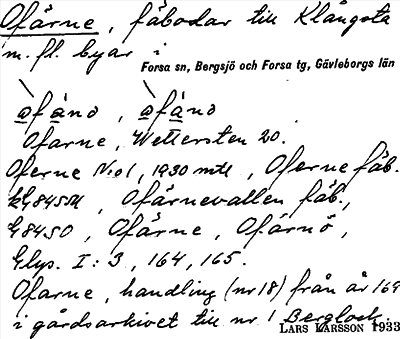 Ofärne, fäbodar till Klångsta
m. fl. byar i
Forsa sn, Bergsjö och Forsa tg, Gävleborgs län
Ofarne, Wettersten 20.
Oferne No1, 1930 mtl, Oferne fäb.
Ofärnevallen fäb.,
G8450, Ofärne, Ofärnö,
Glys. I: 3, 164, 165.
Ofarne, handling (nr 18) från år 169
i gårdsarkivet till nr 1 Berglock.
LARS LARSSON 1933